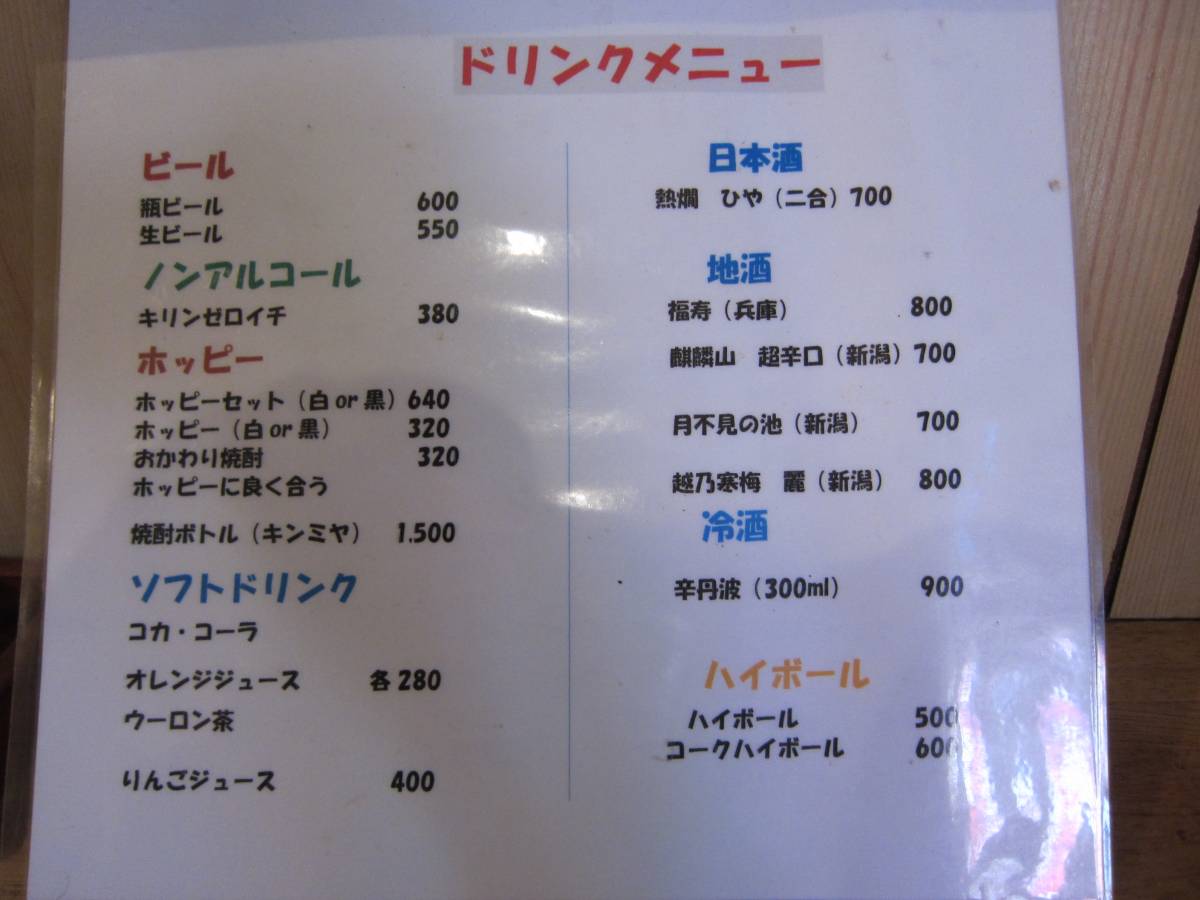 ドリンクメニュー
ビール
瓶ビール 600
生ビール 550
ノンアルコール
キリンゼロイチ 380
ホッピー
ホッピーセット（白or黒）640
ホッピー（白or黒） 320
おかわり焼酎 320
ホッピーに良く合う
焼酎ボトル（キンミヤ） 1.500
ソフトドリンク
コカ・コーラ
オレンジジュース 各280
ウーロン茶
りんごジュース 400
日本酒
熱燗 ひや（二合）700
地酒
福寿（兵庫） 800
麒麟山 超辛口（新潟）700
月不見の池（新潟） 700
越乃寒梅 麗（新潟） 800
冷酒
辛丹波（300ml） 900
ハイボール
ハイボール 500
コークハイボール 600